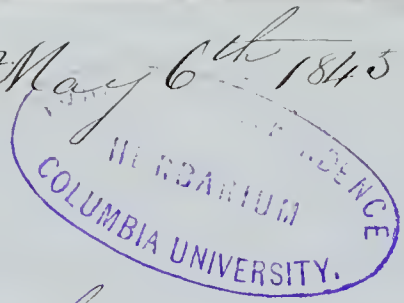 May 6th 1845
HERBARIUM
COLUMBIA UNIVERSITY.